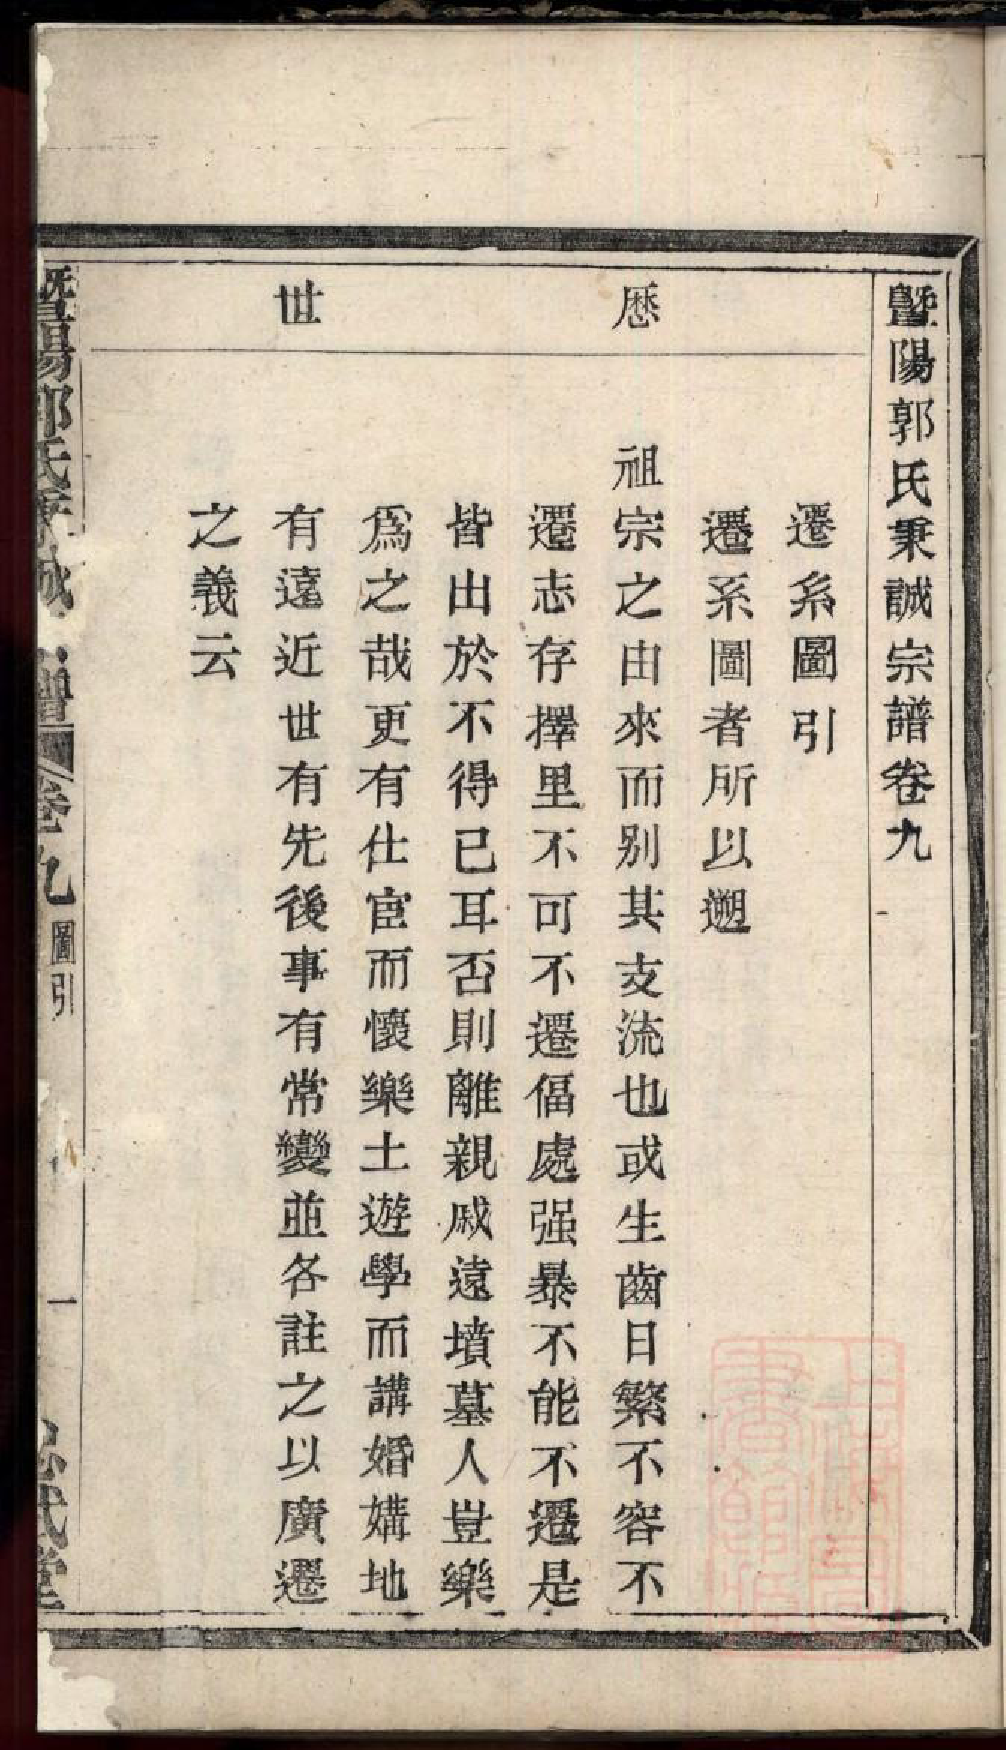 暨陽郭氏秉誠宗譜卷九
歷
世
遷系圖引
遷系圖者所以遡
祖宗之由來而別其支流也或生齒日繁不容不
遷志存擇里不可不遷偪處强暴不能不遷是
皆出於不得已耳否則離親戚遠墳墓人豈樂
爲之哉更有仕宦而懷樂土遊學而講婚媾地
有遠近世有先後事有常變並各註之以廣遷
之義云
暨陽郭氏秉誠 譜 卷九 圖引 一